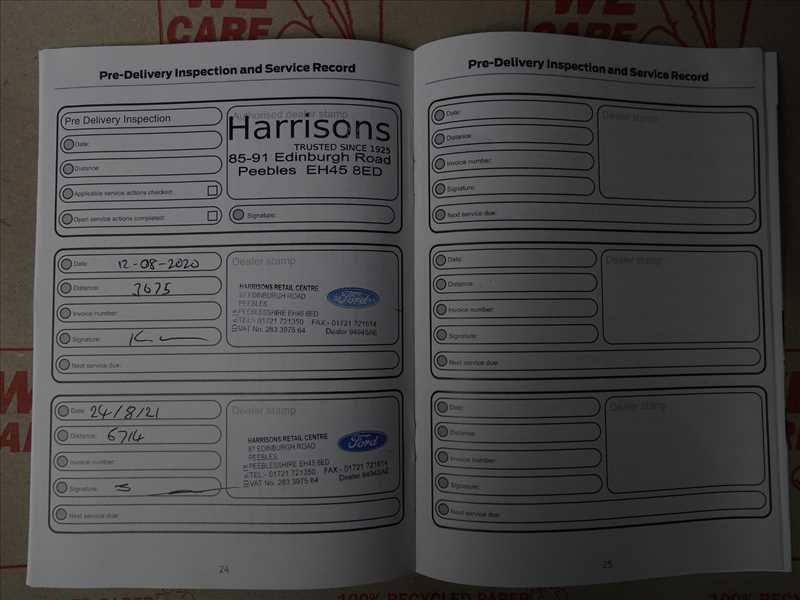 WE
CARE
WE
CARE
Pre-Delivery Inspection and Service Record
Pre Delivery Inspection
Date:
Distance:
Applicable service actions checked:
Open service actions completed:
Authorised dealer stamp
Harrisons
TRUSTED SINCE 1925
85-91 Edinburgh Road
Peebles EH45 8ED
Signature:
Date: 12-08-2020
Distance: 3675
Invoice number:
Signature:
Next service due:
Dealer stamp
HARRISONS RETAIL CENTRE
87 EDINBURGH ROAD
PEEBLES
PEEBLESSHIRE EH45 8ED
TEL:- 01721 721350 FAX:- 01721 721614
VAT No. 283 3975 64 Dealer 94945/AE
Ford
Date: 24/8/21
Distance: 6714
Invoice number:
Signature:
Next service due:
Dealer stamp
HARRISONS RETAIL CENTRE
87 EDINBURGH ROAD
PEEBLES
PEEBLESSHIRE EH45 8ED
TEL:- 01721 721350 FAX:- 01721 721614
VAT No. 283 3975 64 Dealer 94945/AE
Ford
24
Pre-Delivery Inspection and Service Record
Date:
Distance:
Invoice number:
Signature:
Next service due:
Dealer stamp
Date:
Distance:
Invoice number:
Signature:
Next service due:
Dealer stamp
Date:
Distance:
Invoice number:
Signature:
Next service due:
Dealer stamp
25
WE
CARE
100% RECYCLED PAPER